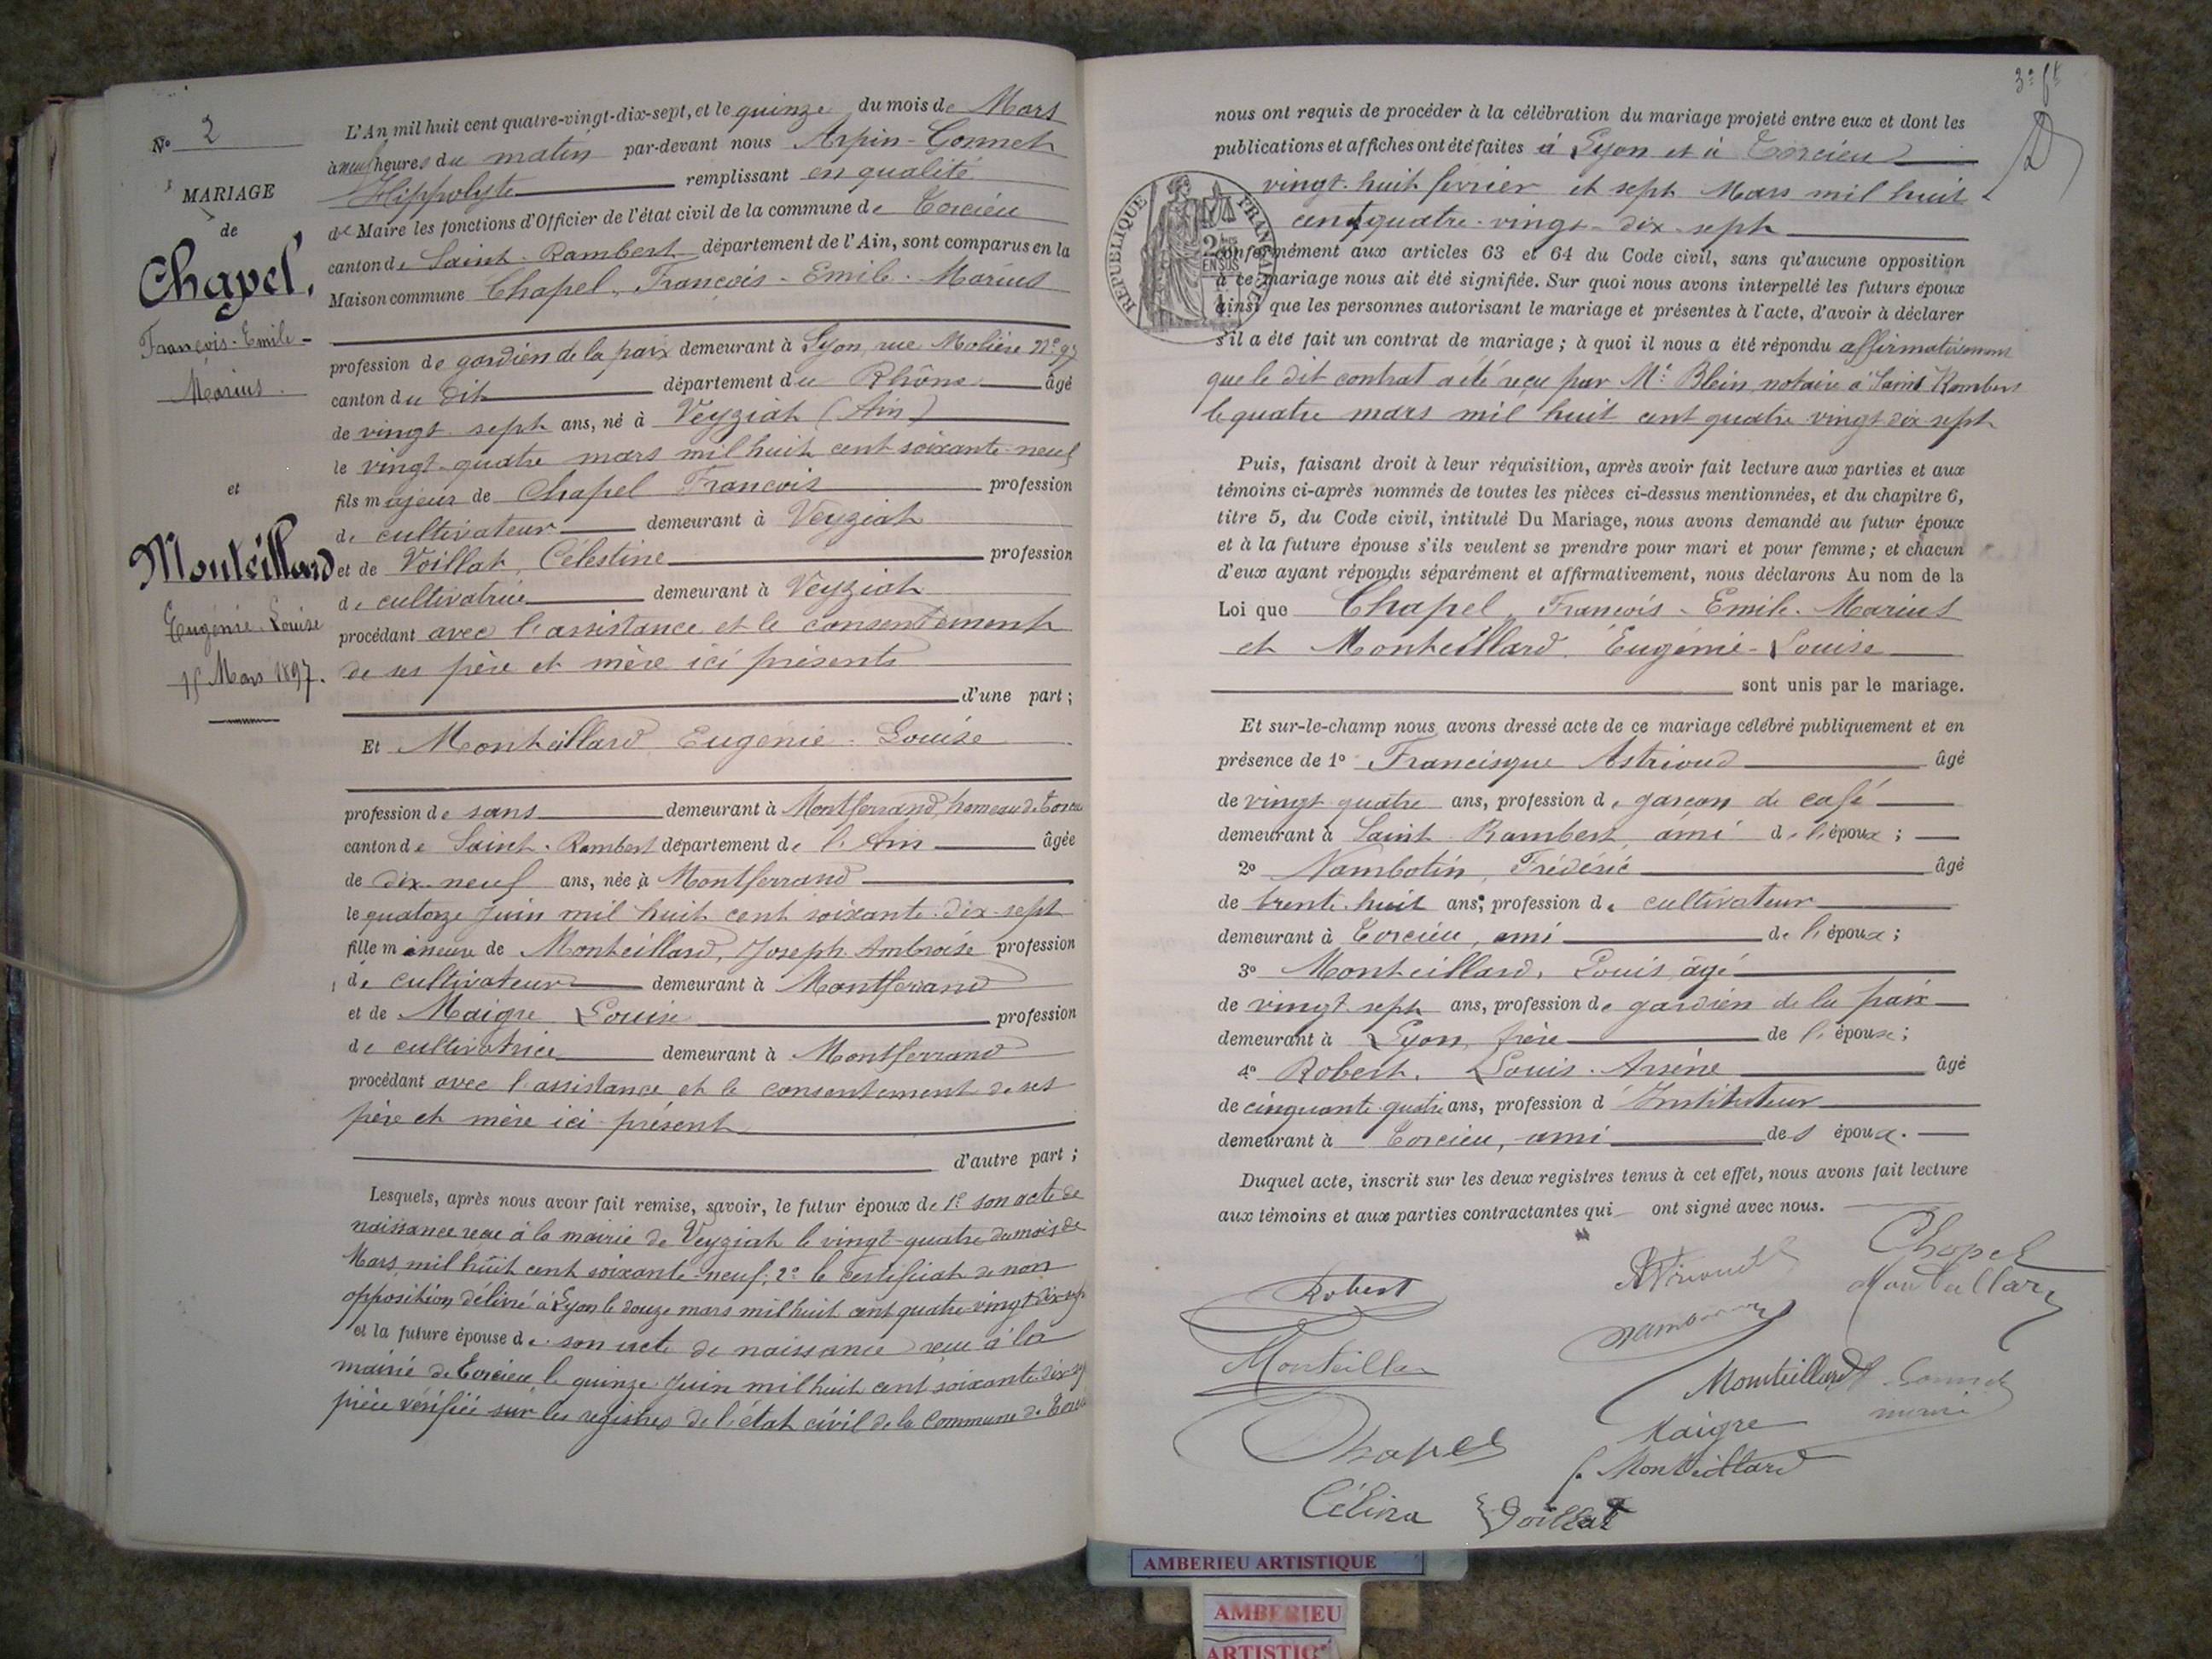 N° 2
MARIAGE
de
Chapel,
François-Emile-
Marius.
et
Monteillard
Eugénie-Louise
15 Mars 1897.
L'An mil huit cent quatre-vingt-dix-sept, et le quinze du mois de Mars
à neuf heures du matin par-devant nous Arpin-Gonnet
Hippolyte remplissant en qualité
de Maire les fonctions d'Officier de l'état civil de la commune de Torcieu
canton de Saint-Rambert département de l'Ain, sont comparus en la
Maison commune Chapel, François-Emile-Marius
profession de gardien de la paix demeurant à Lyon, rue Molière N° 97
canton du dit département du Rhône âgé
de vingt-sept ans, né à Veyziat (Ain)
le vingt-quatre mars mil huit cent soixante-neuf
fils majeur de Chapel François profession
de cultivateur demeurant à Veyziat
et de Voillat, Célestine profession
de cultivatrice demeurant à Veyziat
procédant avec l'assistance et le consentement
de ses père et mère ici présents
d'une part;
Et Monteillard Eugénie-Louise
profession de sans demeurant à Montferrand, hameau de Torcieu
canton de Saint-Rambert département de l'Ain âgée
de dix-neuf ans, née à Montferrand
le quatorze Juin mil huit cent soixante-dix-sept
fille mineure de Monteillard, Joseph-Ambroise profession
de cultivateur demeurant à Montferrand
et de Maigre Louise profession
de cultivatrice demeurant à Montferrand
procédant avec l'assistance et le consentement de ses
père et mère ici présent
d'autre part;
Lesquels, après nous avoir fait remise, savoir, le futur époux de 1° son acte de
naissance reçu à la mairie de Veyziat le vingt-quatre du mois de
Mars mil huit cent soixante-neuf; 2° le certificat de non
opposition délivré à Lyon le douze mars mil huit cent quatre-vingt-dix-sept
et la future épouse de son acte de naissance reçu à la
mairie de Torcieu le quinze Juin mil huit cent soixante-dix-sept
pièce vérifiée sur les registres de l'état civil de la Commune de Torcieu
nous ont requis de procéder à la célébration du mariage projeté entre eux et dont les
publications et affiches ont été faites à Lyon et à Torcieu
vingt-huit février et sept Mars mil huit
cent quatre-vingt-dix-sept
REPUBLIQUE FRANÇAISE
conformément aux articles 63 et 64 du Code civil, sans qu'aucune opposition
à ce mariage nous ait été signifiée. Sur quoi nous avons interpellé les futurs époux
ainsi que les personnes autorisant le mariage et présentes à l'acte, d'avoir à déclarer
s'il a été fait un contrat de mariage; à quoi il nous a été répondu affirmativement
que le dit contrat a été reçu par Me Blein, notaire à Saint Rambert
le quatre mars mil huit cent quatre-vingt dix sept
Puis, faisant droit à leur réquisition, après avoir fait lecture aux parties et aux
témoins ci-après nommés de toutes les pièces ci-dessus mentionnées, et du chapitre 6,
titre 5, du Code civil, intitulé Du Mariage, nous avons demandé au futur époux
et à la future épouse s'ils veulent se prendre pour mari et pour femme; et chacun
d'eux ayant répondu séparément et affirmativement, nous déclarons Au nom de la
Loi que Chapel, François-Emile-Marius
et Monteillard Eugénie-Louise
sont unis par le mariage.
Et sur-le-champ nous avons dressé acte de ce mariage célébré publiquement et en
présence de 1° Francisque Astrioud âgé
de vingt quatre ans, profession de garçon de café
demeurant à Saint-Rambert, ami de l'époux;
2° Nambotin, Frédéric âgé
de trente-huit ans; profession de cultivateur
demeurant à Torcieu, ami de l'époux;
3° Monteillard, Louis âgé
de vingt-sept ans, profession de gardien de la paix
demeurant à Lyon, frère de l'épouse;
4° Robert, Louis-Arsène âgé
de cinquante quatre ans, profession d'Instituteur
demeurant à Torcieu, ami des époux.
Duquel acte, inscrit sur les deux registres tenus à cet effet, nous avons fait lecture
aux témoins et aux parties contractantes qui ont signé avec nous.
Chapel
Robert
Monteillard
Monteillard
Maigre
Chapel
f. Monteillard
Célina Voillat
AMBERIEU ARTISTIQUE
AMBERIEU
ARTISTIQ